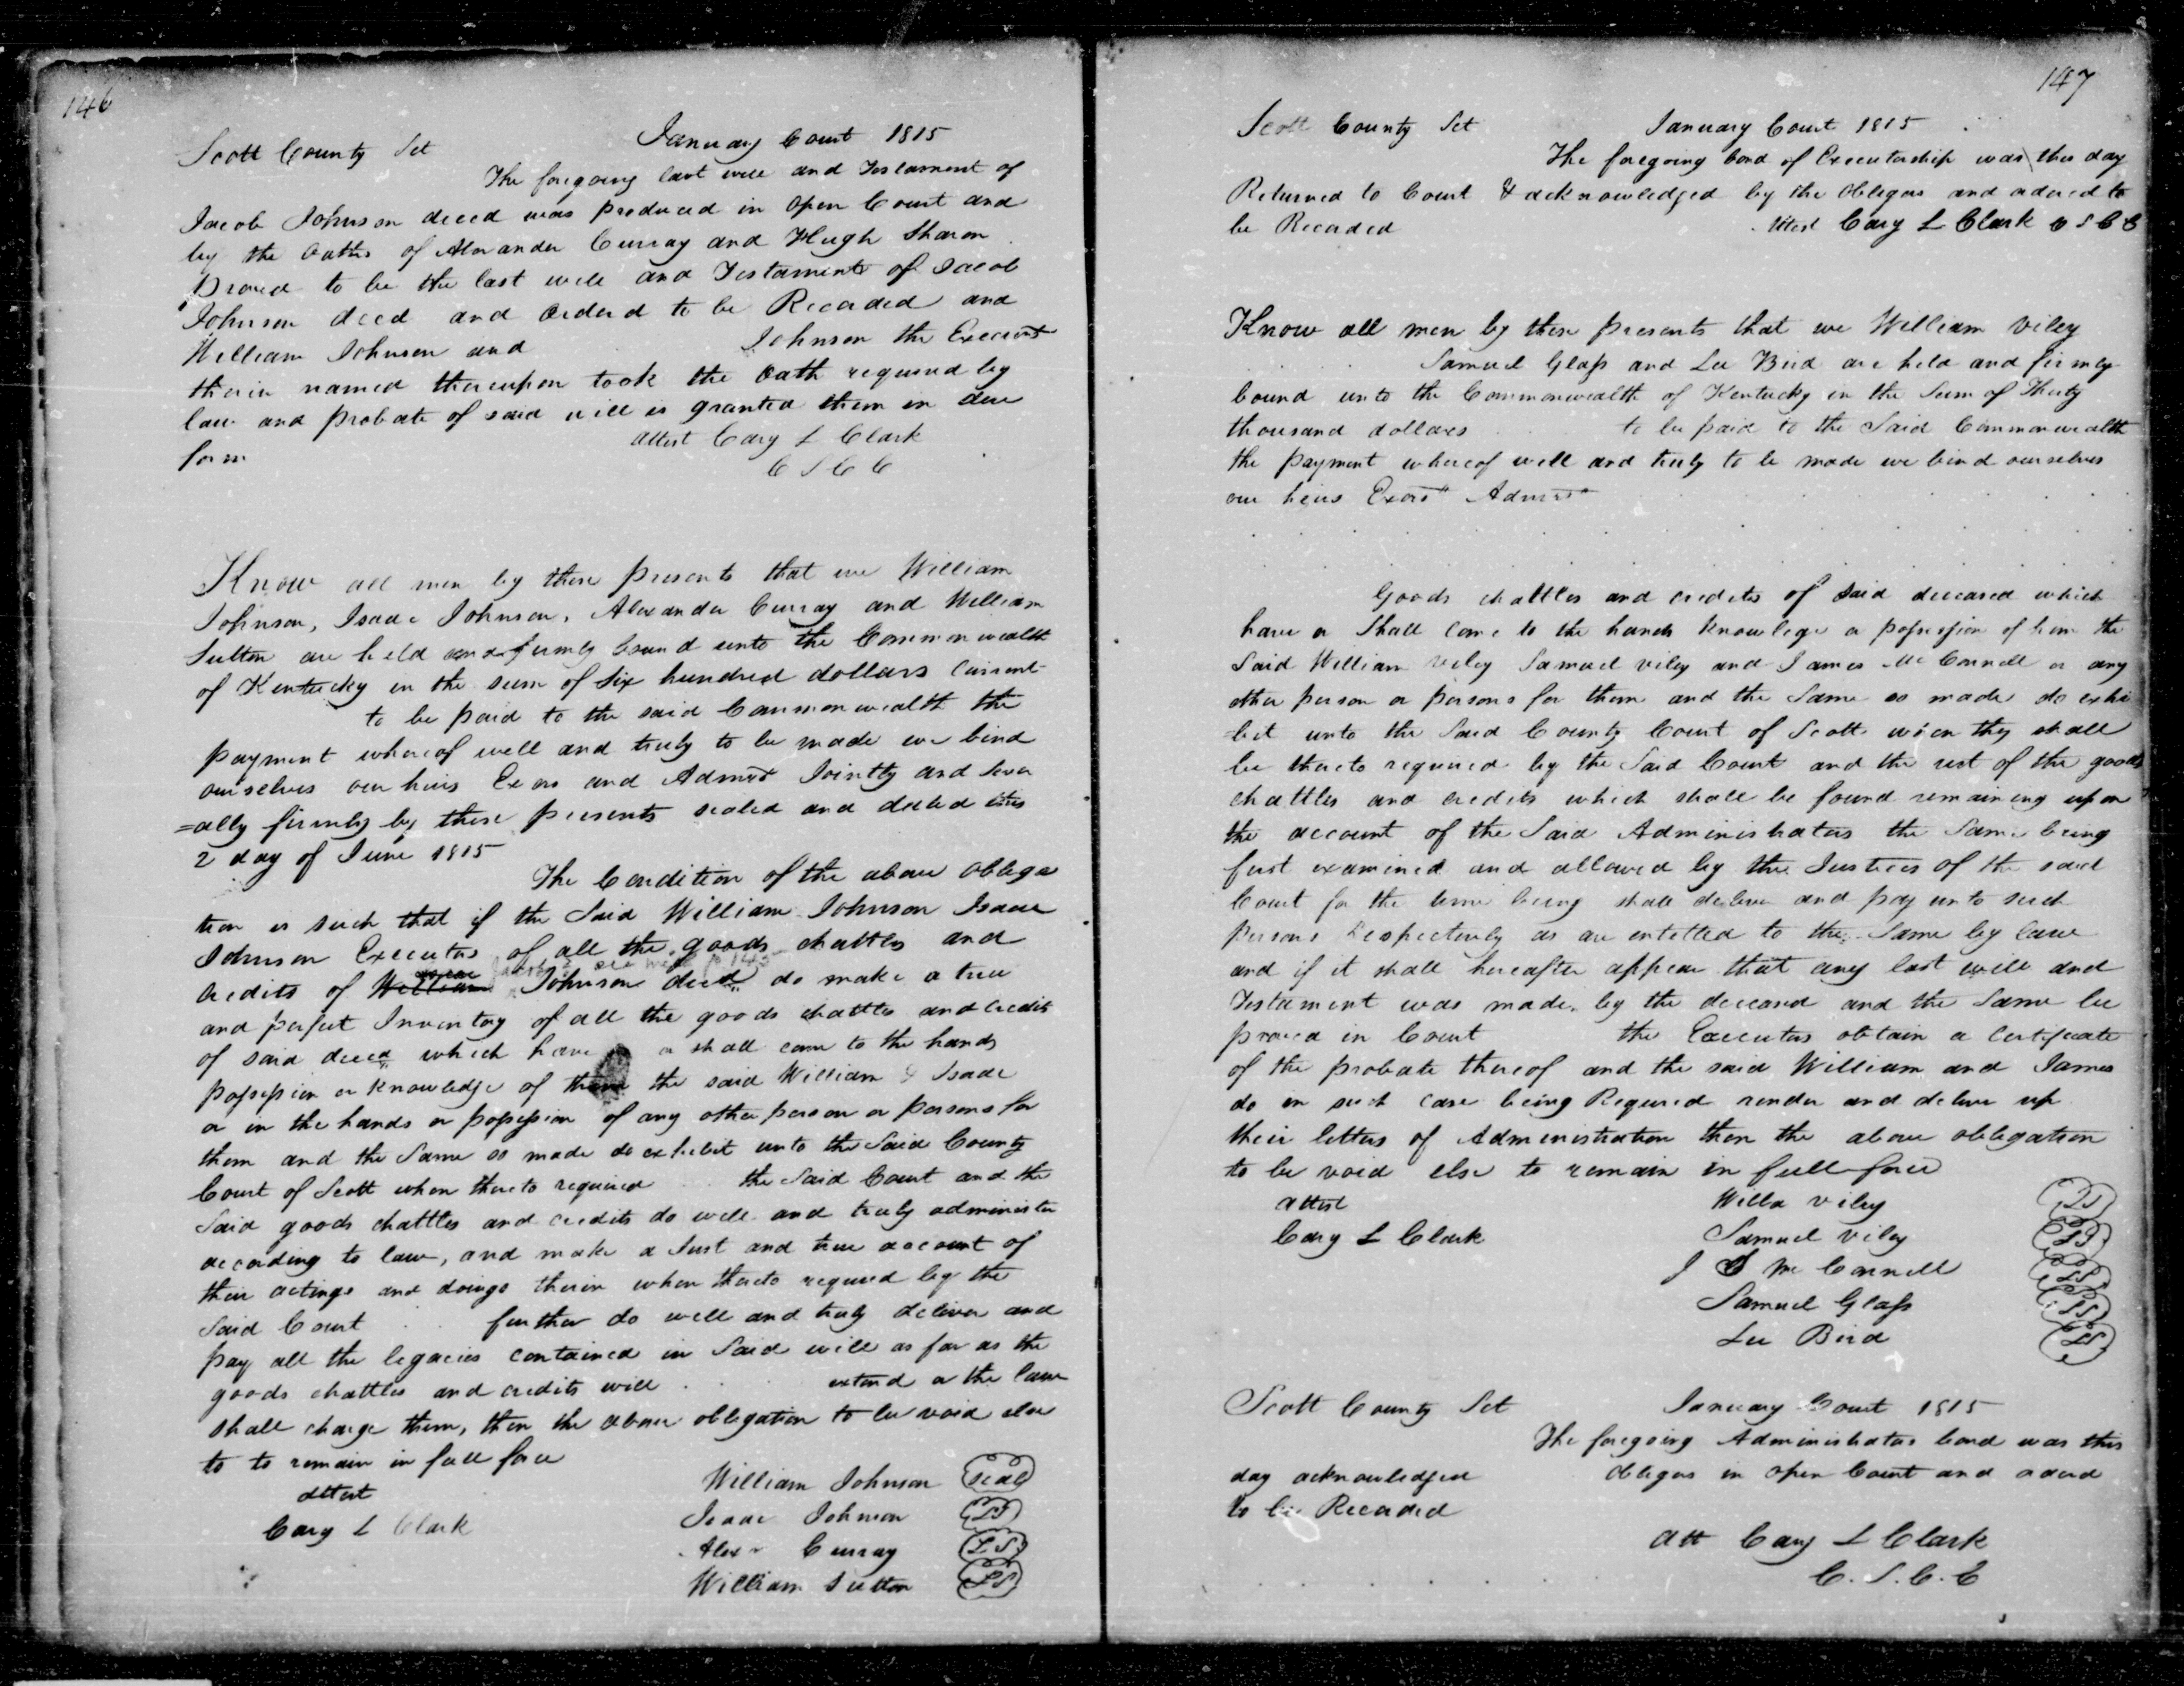 146
Scott County Sct January Court 1815
The foregoing last will and Testament of
Jacob Johnson deced was produced in open Court and
by the oaths of Alexander Curray and Hugh Sharon
proved to be the last will and Testament of Jacob
Johnson deced and ordered to be Recorded and
William Johnson and Johnson the
therein named thereupon took the oath required by
law and probate of said will is granted them in due
form attest Cary L Clark
C S C C
Know all men by these presents that we William
Johnson, Isaac Johnson, Alexander Curray and William
Sutton are held and firmly bound unto the Common wealth
of Kentucky in the sum of six hundred dollars current
to be paid to the said Commonwealth the
payment whereof well and truly to be made we bind
ourselves our heirs Exors and Admrs Jointly and sever
=ally firmly by these presents sealed and dated this
2 day of June 1815
The Condition of the above obliga
tion is such that if the Said William Johnson Isaac
Johnson Executors of all the goods chattles and
credits of William Johnson deced do make a true
and perfect Inventory of all the goods chattles and credits
of said deced which have or shall come to the hands
possession or knowledge of them the said William & Isaac
or in the hands or possession of any other person or persons for
them and the Same so made do exhibit unto the Said County
Court of Scott when thereto required the Said Court and the
Said goods chattles and credits do well and truly administer
according to law, and make a Just and true account of
their actings and doings therein when thereto required by the
Said Court further do well and truly deliver and
pay all the legacies contained in Said will as far as the
goods chattles and credits will extend or the law
shall charge them, then the above obligation to be void else
to to remain in full force
attest William Johnson Seal
Cary L Clark Isaac Johnson LS
Alexr Curray LS
William Sutton LS
147
Scott County Sct January Court 1815
The foregoing bond of Executorship was this day
Returned to Court & acknowledged by the obligors and ordered to
be Recorded Attest Cary L Clark C S C C
Know all men by these presents that we William Viley
Samuel Glass and Lee Bird are held and firmly
bound unto the Commonwealth of Kentucky in the Sum of Thirty
thousand dollars to be paid to the Said Commonwealth
the payment whereof well and truly to be made we bind ourselves
our heirs Exors Admrs
Goods chattles and credits of Said deceased which
have or Shall come to the hands knowlege or possession of him the
Said William Viley Samuel Viley and James McConnell or any
other person or persons for them and the Same so made do exhi
=bit unto the Said County Court of Scott when they shall
be thereto required by the Said Court and the rest of the goods
chattles and credits which shall be found remaining upon
the account of the Said Administrators the Same being
first examined and allowed by the Justices of the said
Court for the time being shall deliver and pay unto such
persons Respectively as are entitled to the Same by law
and if it shall hereafter appear that any last will and
Testament was made by the deceased and the Same be
proved in Court the Executors obtain a certificate
of the probate thereof and the said William and James
do in such case being Required render and deliver up
their letters of Administration then the above obligation
to be void else to remain in full force
attest Willa Viley LS
Cary L Clark Samuel Viley LS
J McConnell LS
Samuel Glass LS
Lee Bird LS
Scott County Sct January Court 1815
The foregoing Administrators bond was this
day acknowledged obligors in open Court and ordered
to be Recorded
Att Cary L Clark
C. S. C. C